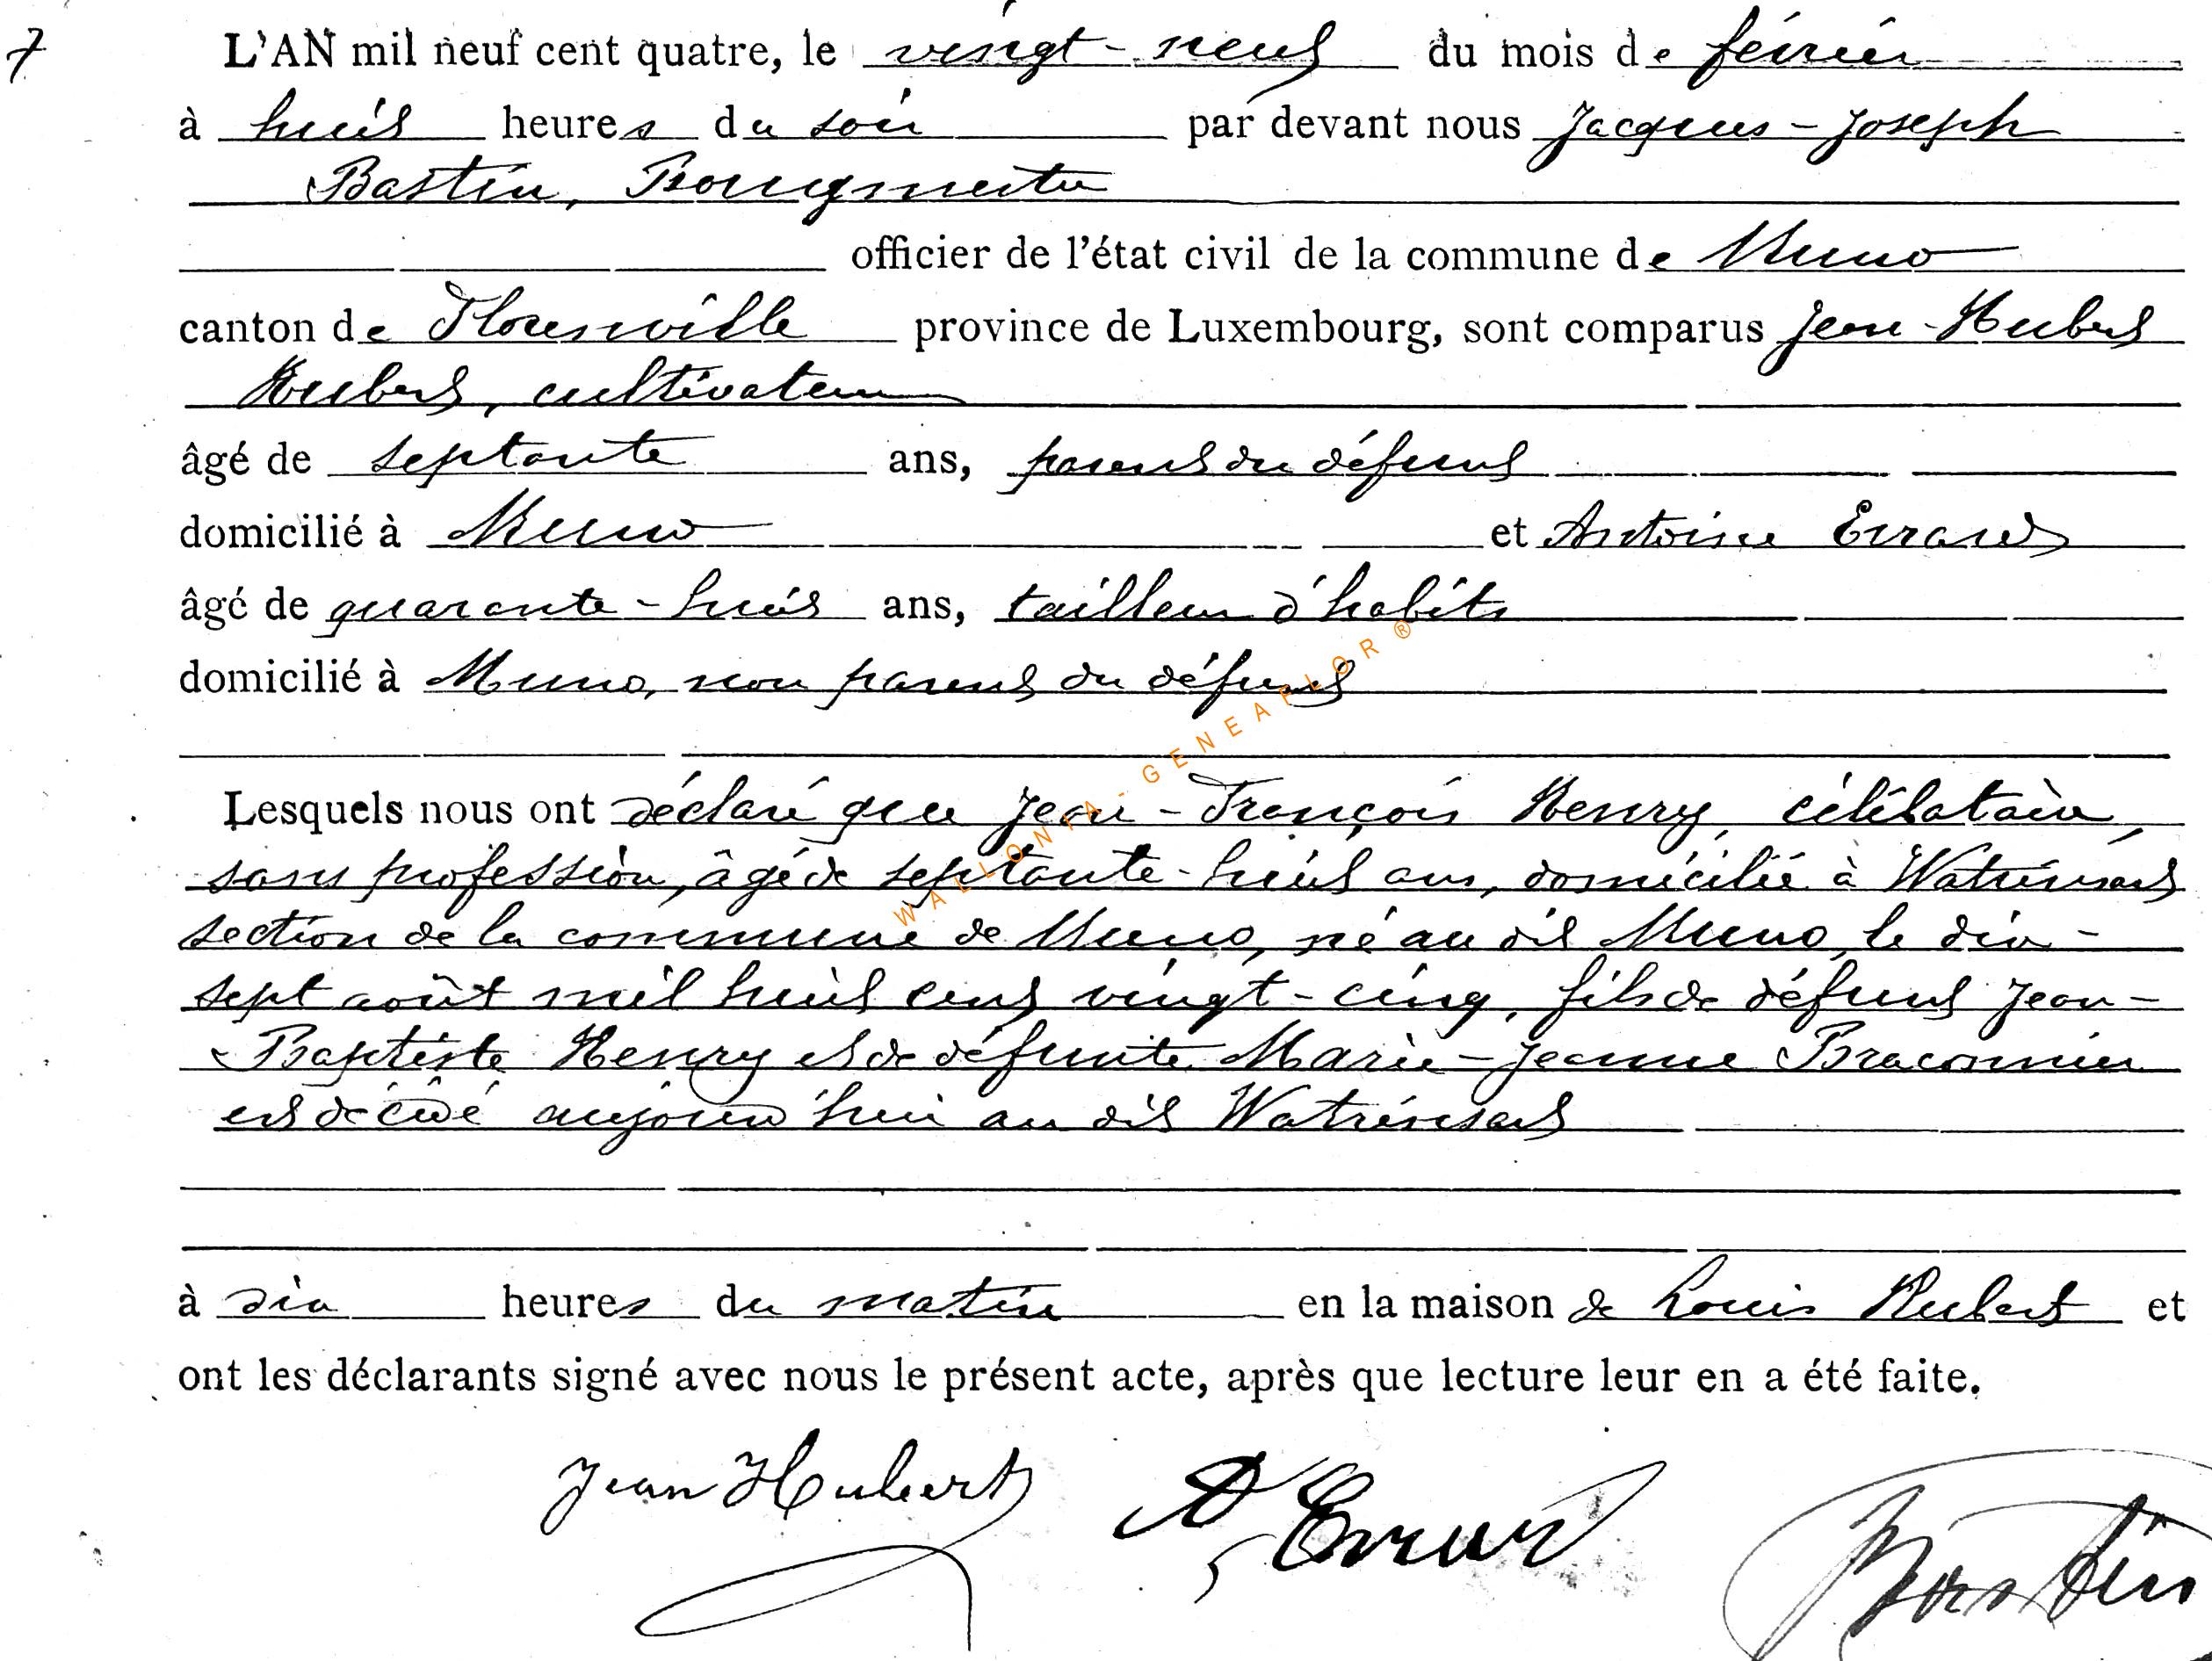 7
L'AN mil neuf cent quatre, le vingt-neuf du mois de février
à huit heures du soir par devant nous Jacques-Joseph
Bastin, Bourgmestre
officier de l'état civil de la commune de Muno
canton de Florenville province de Luxembourg, sont comparus Jean-Hubert
Hubert, cultivateur
âgé de septante ans, parent du défunt
domicilié à Muno et Antoine Errard
âgé de quarante-huit ans, tailleur d'habits
domicilié à Muno, non parent du défunt
Lesquels nous ont déclaré que Jean-François Henry, célibataire,
sans profession, âgé de septante-huit ans, domicilié à Watrinsart
section de la commune de Muno, né au dit Muno, le dix-
sept août mil huit cent vingt-cinq, fils de défunt Jean-
Baptiste Henry et de défunte Marie-Jeanne Braconnier
est décédé aujourd'hui au dit Watrinsart
à dix heures du matin en la maison de Louis Hubert et
ont les déclarants signé avec nous le présent acte, après que lecture leur en a été faite.
Jean Hubert A Errard Bastin
WALLONIA-GENEAFLOR ®